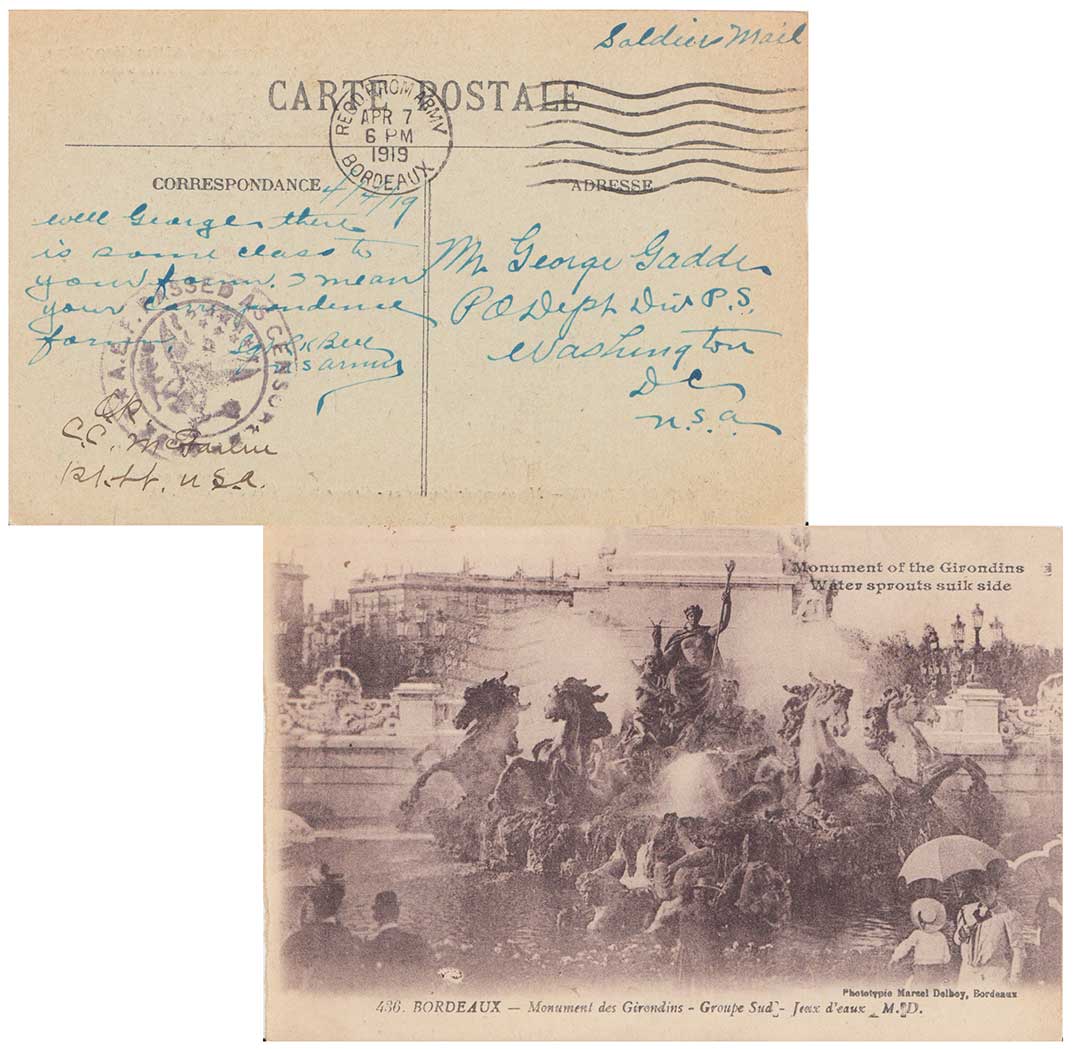 Soldiers Mail
CARTE POSTALE
REC'D FROM ARMY
APR 7
6 PM
1919
BORDEAUX
CORRESPONDANCE
ADRESSE
4/4/19
Well George there
is some class to
your form. I mean
your correspondence
form.
US Army
A.E.F. PASSED AS CENSORED
OK.
C.C.
1st Lt. USA.
Mr George Gaddes
PO Dept Div P.S.
Washington
DC
U.S.A
Monument of the Girondins
Water sprouts suik side
Phototypie Marcel Delboy, Bordeaux
436. BORDEAUX — Monument des Girondins - Groupe Sud - Jeux d'eaux M. D.